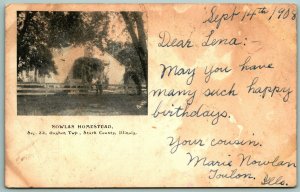 Sept 14th 1908
Dear Lena:-
May you have
many such happy
birthdays.
Your cousin.
Marie Nowlan
Toulon,
Ills.
NOWLAN HOMESTEAD,
Stark County, Illinois.